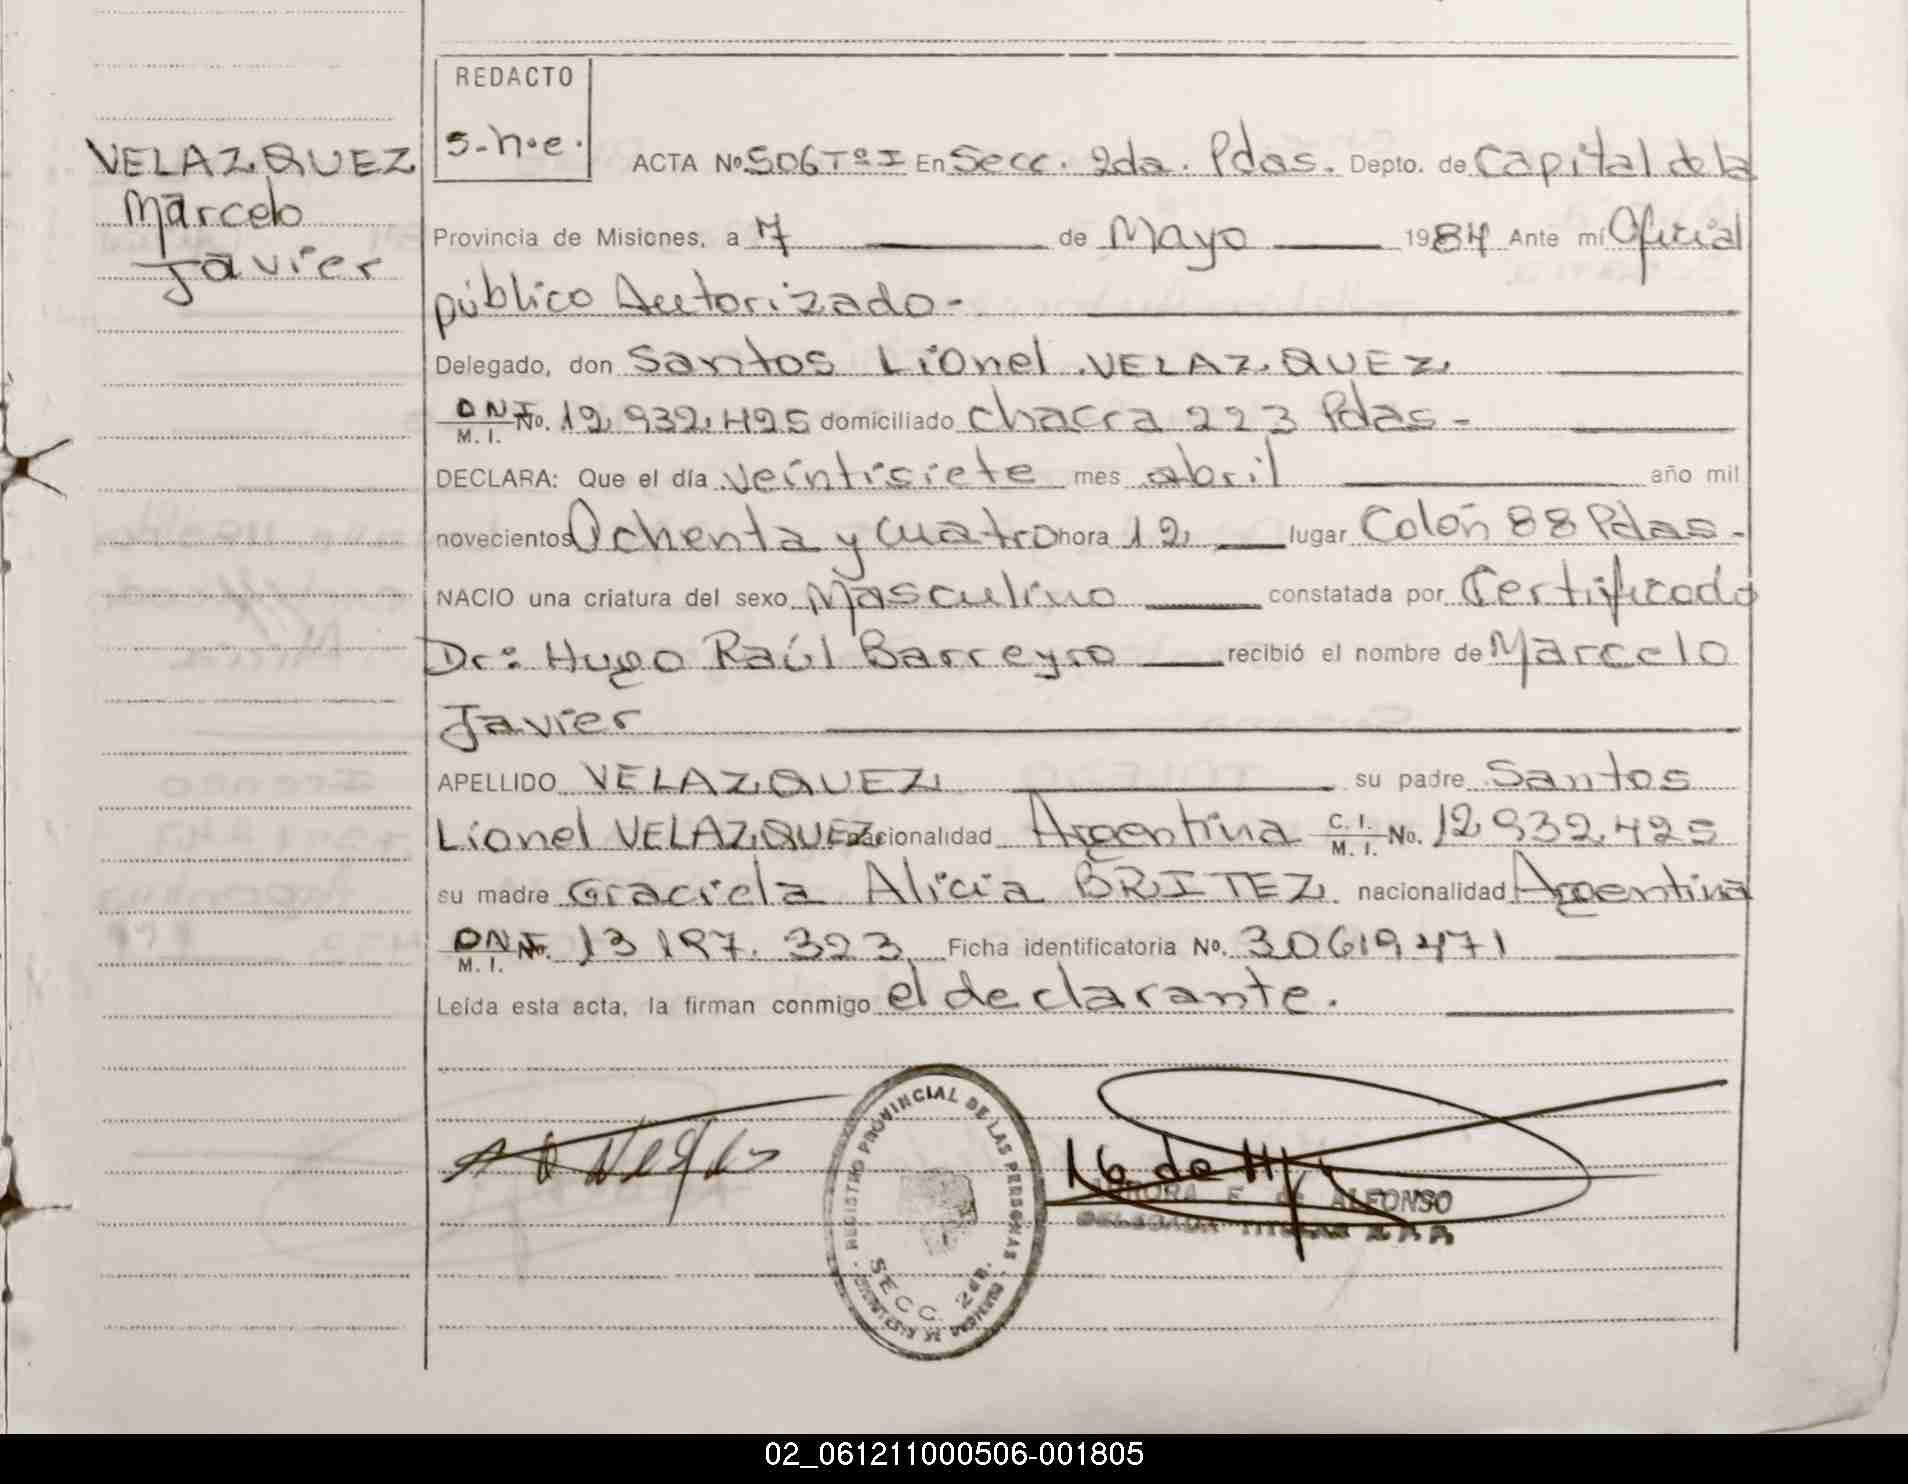 REDACTO
s.h.e.
VELAZQUEZ
Marcelo
Javier
ACTA No. 506 Tº I En Secc. 2da. Pdas. Depto. de Capital de la
Provincia de Misiones, a 7 de Mayo 1984 Ante mí Oficial
público Autorizado-
Delegado, don Santos Lionel VELAZQUEZ
DNI No. 12.932.425 domiciliado chacra 223 Pdas-
M. I.
DECLARA: Que el día veintisiete mes abril año mil
novecientos Ochenta y cuatro hora 12, lugar Colón 88 Pdas-
NACIO una criatura del sexo Masculino constatada por Certificado
Dr: Hugo Raúl Barreyro recibió el nombre de Marcelo
Javier
APELLIDO VELAZQUEZ su padre Santos
Lionel VELAZQUEZ nacionalidad Argentina C. I. No. 12.932.425
M. I.
su madre Graciela Alicia BRITEZ nacionalidad Argentina
DNI No. 13 197. 323 Ficha identificatoria No. 30619471
M. I.
Leída esta acta, la firman conmigo el declarante.
REGISTRO PROVINCIAL DE LAS PERSONAS
SECC. 2da.
E. de ALFONSO
DELEGADA TITULAR R.P.P.
02_061211000506-001805